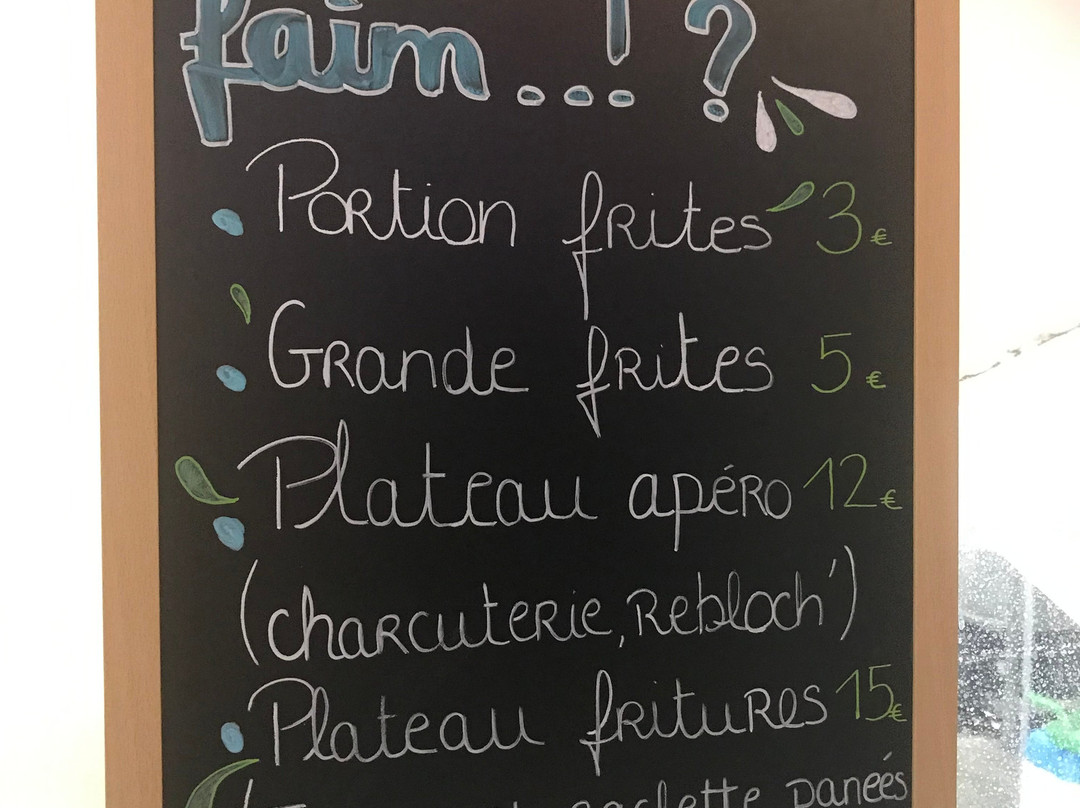 faim...!?
Portion frites 3€
Grande frites 5€
Plateau apéro 12€
(charcuterie, Rebloch')
Plateau fritures 15€
panées